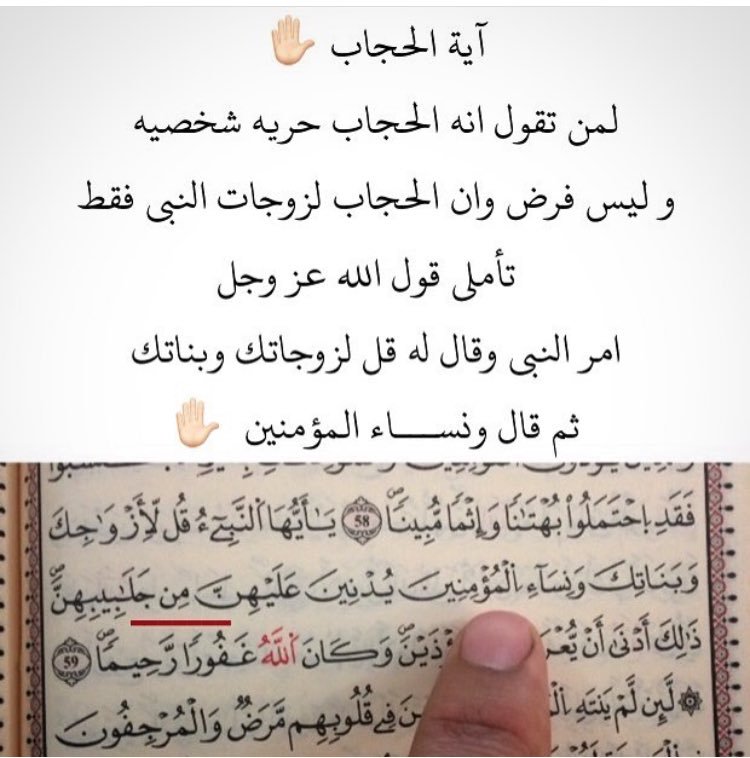 آية الحجاب ✋🏻
لمن تقول انه الحجاب حريه شخصيه
و ليس فرض وان الحجاب لزوجات النبى فقط
تأملى قول الله عز وجل
امر النبى وقال له قل لزوجاتك وبناتك
ثم قال ونســـاء المؤمنين ✋🏻
فَقَدِ اِحْتَمَلُواْ بُهْتَٰناً وَإِثْماً مُّبِيناًۖ 58 يَٰأَيُّهَا اَلنَّبِيٓءُ قُل لِّأَزْوَٰجِكَ
وَبَنَاتِكَ وَنِسَآءِ اِلْمُؤْمِنِينَ يُدْنِينَ عَلَيْهِنَّ مِن جَلَٰبِيبِهِنَّۖ
ذَٰلِكَ أَدْنَىٰ أَنْ وَكَانَ اَللَّهُ غَفُوراً رَّحِيماًۖ 59
۞ لَّئِن لَّمْ يَنتَهِ فِي قُلُوبِهِم مَّرَضٌ وَالْمُرْجِفُونَ